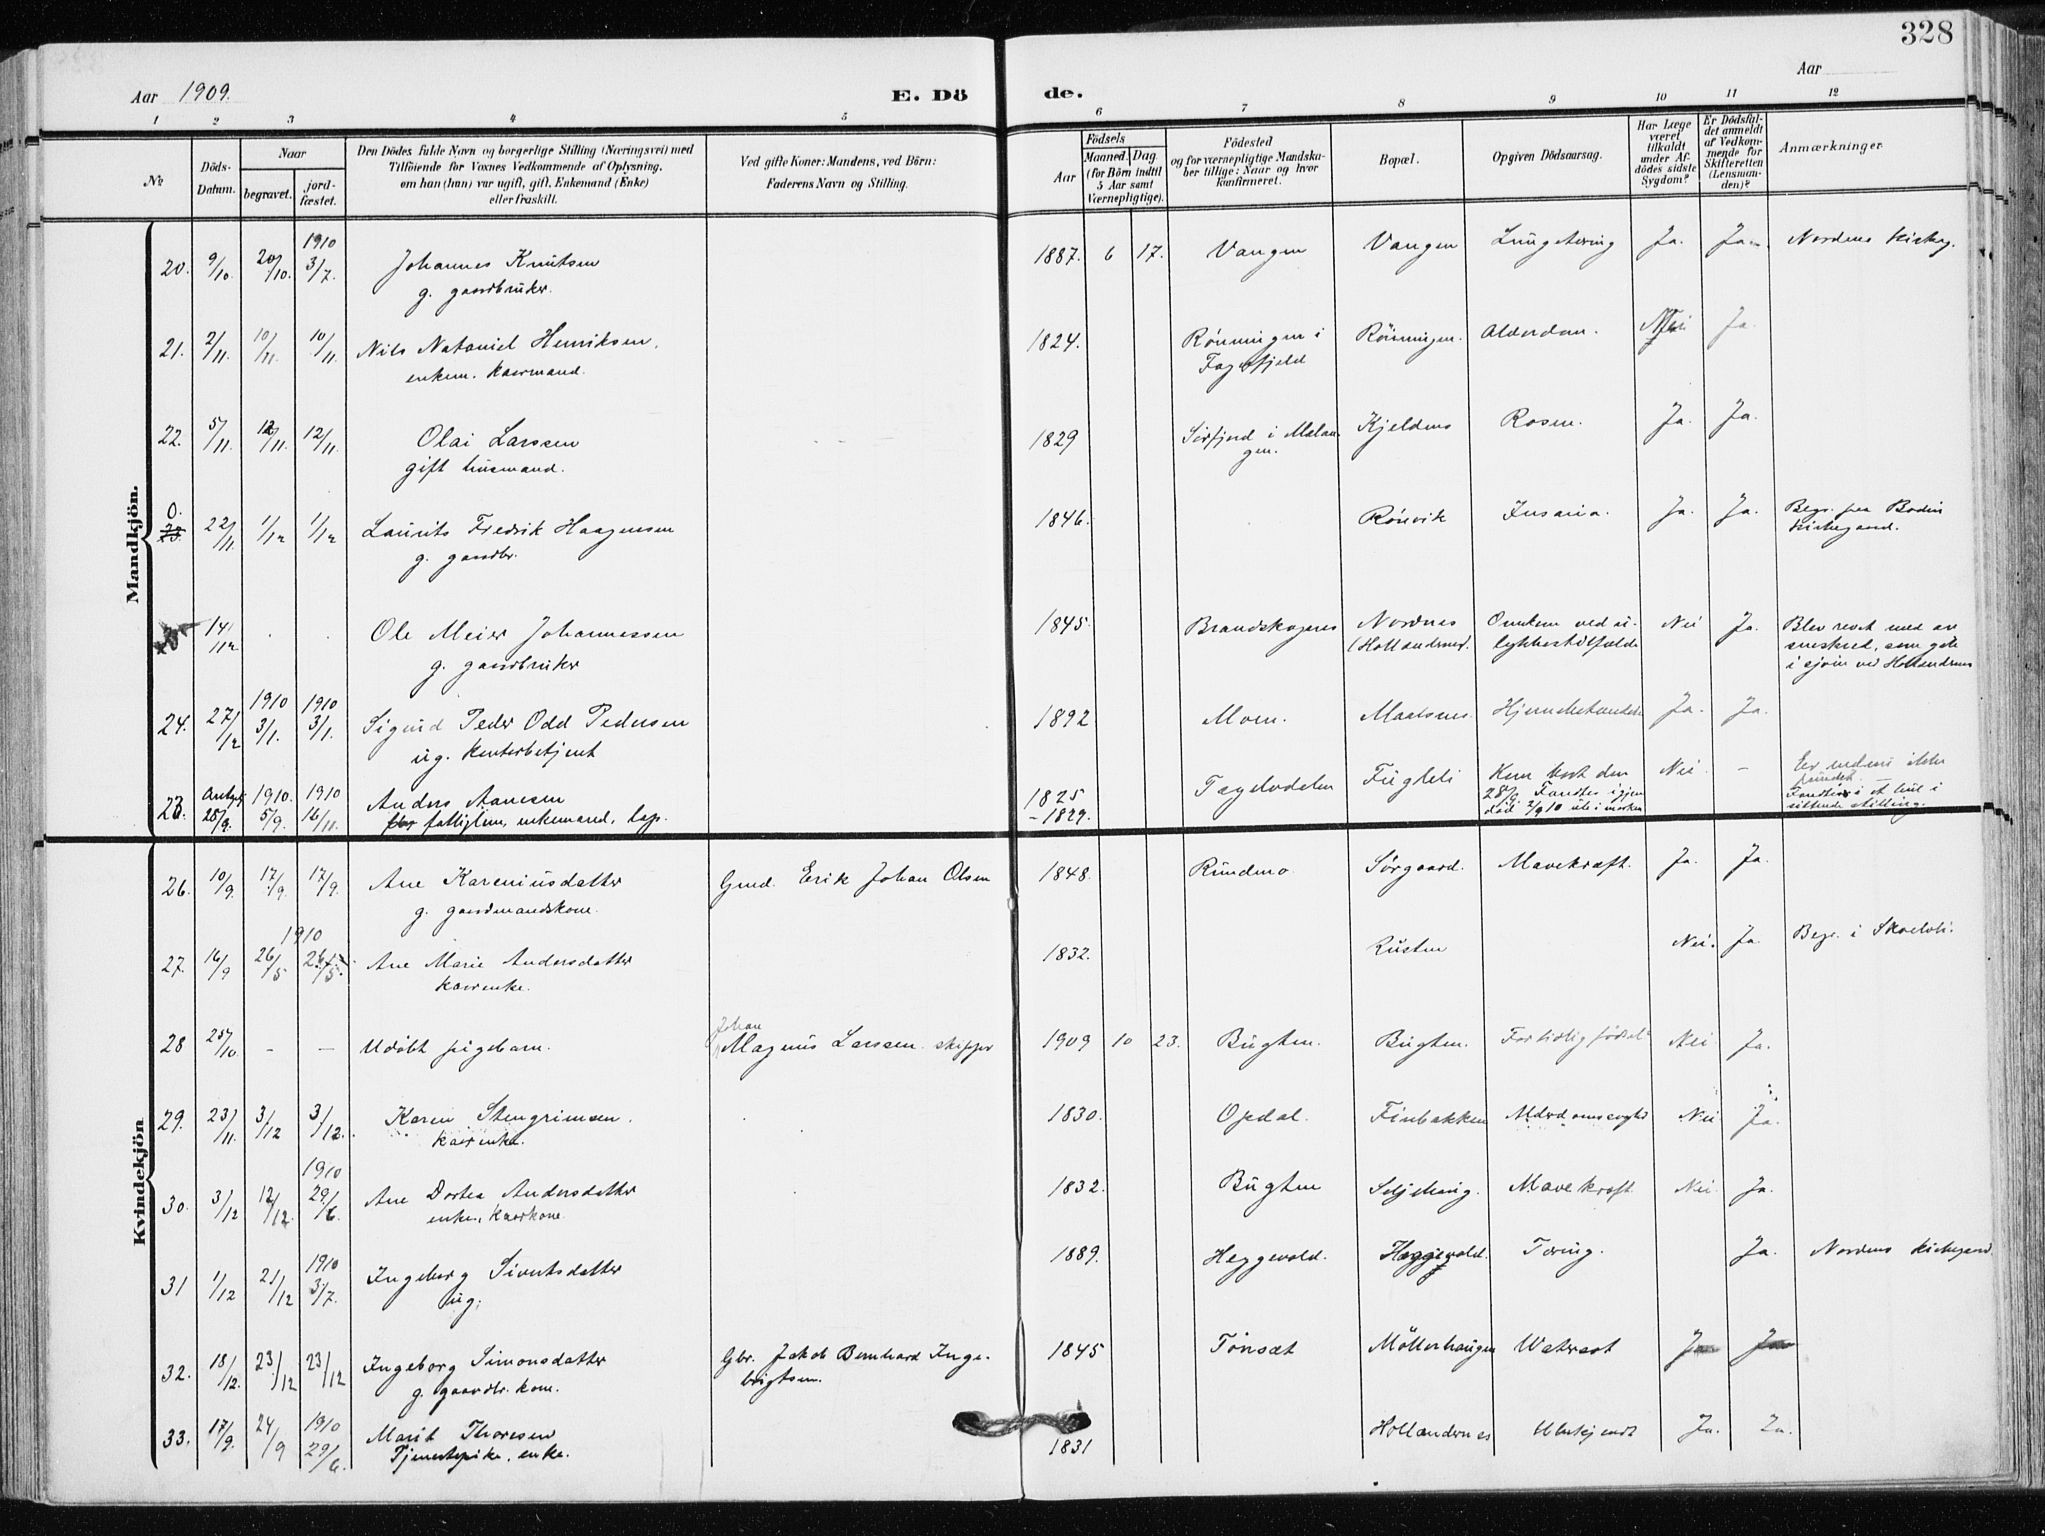 328
Aar 1909.
E. Dö de.
Aar
1 2 3 4 5 6 7 8 9 10 11 12
No
Döds-Datum.
Naar
begravet.
jord-fæstet.
Den Dödes fulde Navn og borgerlige Stilling (Næringsvei) med
Tilföiende for Voxnes Vedkommende af Oplysning,
om han (hun) var ugift, gift, Enkemand (Enke)
eller fraskilt.
Ved gifte Koner: Mandens, ved Börn:
Faderens Navn og Stilling.
Födsels
Aar
Maaned. Dag.
(for Börn indtil
5 Aar samt
Værnepligtige).
Födested
og for værnepligtige Mandska-
ber tillige: Naar og hvor
konfirmeret.
Bopæl.
Opgiven Dödsaarsag.
Har Læge
været
tilkaldt
under Af-
dödes sidste
Sygdom?
Er Dödsfal-
det anmeldt
af Vedkom-
mende for
Skifteretten
(Lensman-
den)?
Anmærkninger.
Mandkjön.
1910
20. 9/10. 20/10. 3/7. Johannes Knutsen 1887. 6 17. Vangen Vangen Lungetæring Ja. Ja. Nordens kirkeg.
g. gaardbruker.
21. 2/11. 10/11. 10/11. Nils Nataniel Henriksen, 1824. Rønningen i Rönningen. Alderdom. Nei Ja.
enkem. kaarmand. Fagerfjeld
22. 5/11. 12/11. 12/11. Olai Larssen 1829 Sörfjord i Malan- Kjeldmo Rosen. Ja. Ja.
gift husmand. gen.
0.
23. 22/11. 1/12 1/12 Laurits Fredrik Haagensen 1846. Rönvik Insania. Ja. Ja. Begr. paa Bodin
g. gaardbr. kirkegaard.
14/12 Ole Meier Johannessen 1845. Brandskognes Nordnes Omkom ved u- Nei Ja. Blev revet med av
g. gaardbruker (Hollendernes). lykkestilfælde sneskred, som gik
i sjøin ved Hollendernes
1910 1910
24. 27/12 3/1. 3/1. Sigurd Peder Odd Pedersen 1892 Moen. Maalsnes. Ja. Ja.
ug. kontorbetjent
Antagel. 1910. 1910
25/9. 5/9. 16/11. Anders Aanesen 1825 -1829. Fagelvdalen Fugleli Kom bort den Nei –
fattiglem, enkemand, lap. 25/9. Fandtes igjen
död 2/9 10 ute i marken
Fandtes i et hul i
sittende stilling.
Kvindekjön
26. 10/9. 17/9. 17/9. Ane Kareniusdatter Gmd. Erik Johan Olsen 1848. Rundmo. Sørgaard. Mavekræft. Ja. Ja.
g. gaardmandskone.
1910
27. 16/9 26/5 26/5. Ane Marie Andersdatter 1832. Rusten Nei. Ja. Begr. i Skoelvli.
kaarenke.
28 25/10. – – Udöbt pigebarn. Johan Magnus Larssen skipper 1909 10 23. Bugten. Bugten. For tidlig födsel Nei Ja.
29. 23/11. 3/12 3/12. Karen Stengrimsen. 1830. Opdal. Finbakken Nei Ja.
kaarenke.
1910
30. 3/12 12/12. 29/6. Ane Dortea Andersdatter 1832. Bugten Seljehaug. Mavekræft. Nei. Ja.
enke, kaarkone.
1910
31 1/12 21/12 3/7. Ingeborg Sivertsdatter 1889. Heggevold. Heggevold. Tæring. Ja. Nordens kirkegaard.
ug.
32. 18/12. 23/12 23/12 Ingeborg Simonsdatter Gbr. Jakob Bernhard Inge- 1845 Tönsæt Möllerhaugen Watersot Ja Ja
g. gaardbr. kone. brigtsen.
1910
33. 17/9. 24/9 29/6. Marit Thoresen 1831 Hollendernes Ubekjendt Ja. Ja.
Tjenestepike, enke.